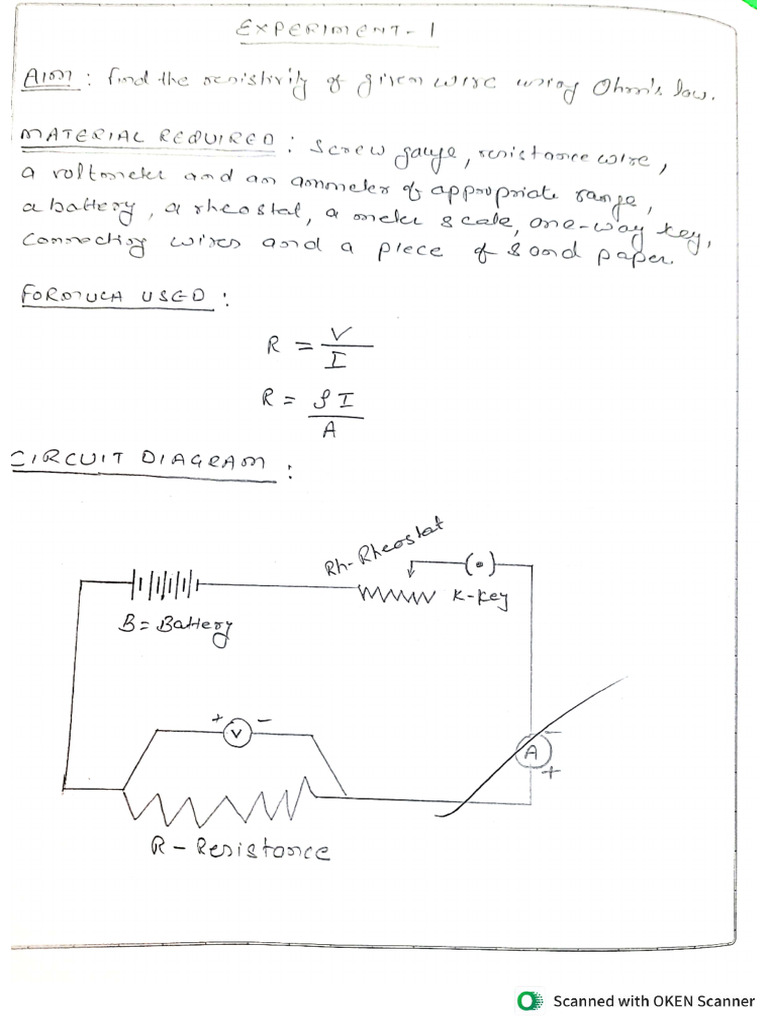 EXPERIMENT-1
AIM : find the resistivity of given wire using Ohm's law.
MATERIAL REQUIRED : Screw gauge, resistance wire,
a voltmeter and an ammeter of appropriate range,
a battery, a rheostat, a meter scale, one-way key,
Connecting wires and a piece of sand paper.
FORMULA USED :
R = V
I
R = ρI
A
CIRCUIT DIAGRAM :
Rh-Rheostat
(•)
K-Key
B = Battery
+ V −
− A +
R - Resistance
Scanned with OKEN Scanner